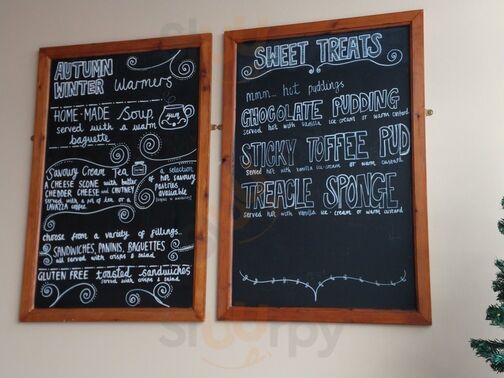 AUTUMN
WINTER Warmers
HOME-MADE Soup
served with a warm
baguette
yum
Savoury Cream Tea
A CHEESE SCONE with butter
CHEDDER CHEESE and CHUTNEY
served with a pot of tea or a
LAVAZZA coffee
a selection
of hot savoury
pastries
available
choose from a variety of fillings...
SANDWICHES, PANINIS, BAGUETTES
all served with crisps & salad
GLUTEN FREE toasted sandwiches
served with crisps & salad
SWEET TREATS
mmm... hot puddings
CHOCOLATE PUDDING
served hot with vanilla ice cream or warm custard
STICKY TOFFEE PUD
served hot with vanilla ice-cream or warm custard
TREACLE SPONGE
served hot with vanilla ice-cream or warm custard
Sluurpy